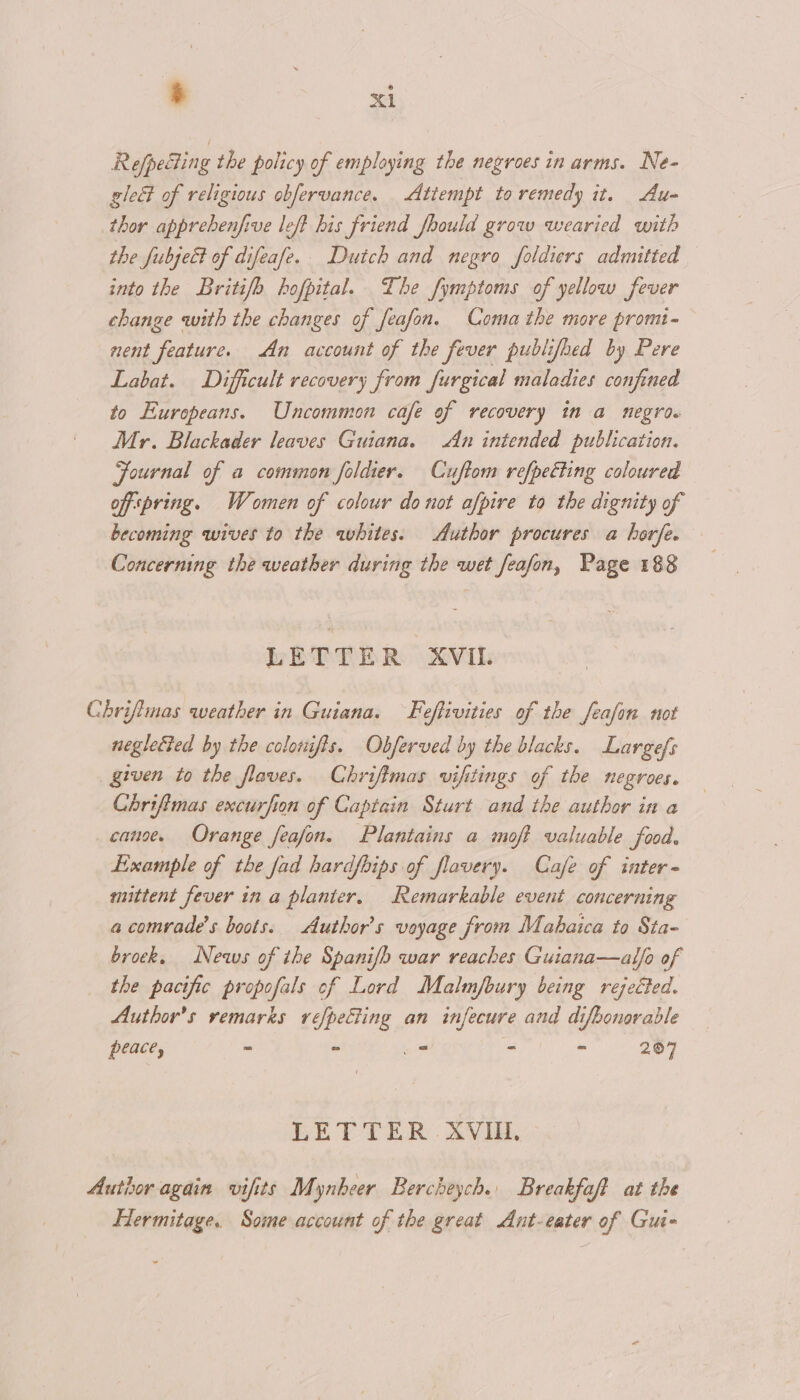 xi
Reſpecting the policy of employing the negroes in arms. Ne-
glect of religious obſervance. Attempt to remedy it. Au-
thor apprehenſive leſt his friend ſhould grow wearied with
the ſubject of diſeaſe. Dutch and negro ſoldiers admitted
into the Britiſh hoſpital. The ſymptoms of yellow fever
change with the changes of ſeaſon. Coma the more promi-
nent feature. An account of the fever publiſhed by Pere
Labat. Difficult recovery from ſurgical maladies confined
to Europeans. Uncommon caſe of recovery in a negro.
Mr. Blackader leaves Guiana. An intended publication.
Journal of a common ſoldier. Cuſtom reſpecting coloured
offspring. Women of colour do not aſpire to the dignity of
becoming wives to the whites. Author procures a horſe.
Concerning the weather during the wet ſeaſon, Page 188
LETTER XVII.
Chriſtmas weather in Guiana. Feſtivities of the ſeaſon not
neglected by the coloniſts. Obſerved by the blacks. Largeſs
given to the ſlaves. Chriſtmas viſitings of the negroes.
Chriſtmas excurſion of Captain Sturt and the author in a
canoe. Orange ſeaſon. Plantains a moſt valuable food.
Example of the ſad hardſhips of ſlavery. Caſe of inter-
mittent fever in a planter. Remarkable event concerning
a comrade's boots. Author's voyage from Mahaica to Sta-
broek. News of the Spaniſh war reaches Guiana—alſo of
the pacific propoſals of Lord Malmſbury being rejected.
Author's remarks reſpecting an inſecure and diſhonorable
peace, - - - - - 207
LETTER XVIII.
Author again viſits Mynheer Bercheych. Breakfaſt at the
Hermitage. Some account of the great Ant-eater of Gui-